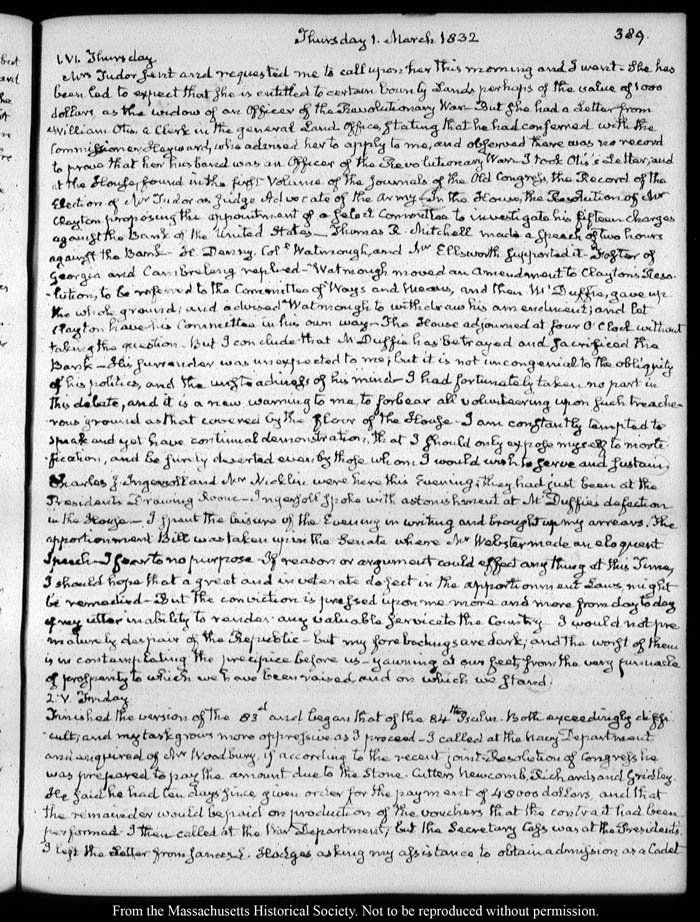 Thursday 1. March 1832
389.
1. VI. Thursday
Mrs Tudor sent and requested me to call upon her this morning and I went. She has
been led to expect that she is entitled to certain bounty Lands perhaps of the value of 1000
dollars, as the widow of an Officer of the Revolutionary War. But she had a Letter from
William Otis a Clerk in the general Land Office, stating that he had conferred with the
Commissioner Hayward, who advised her to apply to me, and observed there was no record
to prove that her husband was an Officer of the Revolutionary War. I took Otis's Letter, and
at the House, found in the first Volume of the Journals of the Old Congress, the Record of the
Election of Mr Tudor as Judge Advocate of the Army. In the House, the Resolution of Mr
Clayton proposing the appointment of a select Committee to investigate his fifteen charges
against the Bank of the United States— Thomas R. Mitchell made a speech of two hours
against the Bank— H. Denny, Coll Watmough, and Mr Ellsworth supported it— Foster of
Georgia and Cambreleng replied— Watmough moved an Amendment to Clayton's Reso-
-lution, to be referred to the Committee of Ways and Means, and then McDuffie, gave up
the whole ground; and advised Watmough to withdraw his amendment; and let
Clayton have his Committee in his own way— The House adjourned at four O'Clock without
taking the question. But I conclude that McDuffie has betrayed and sacrificed the
Bank— His surrender was unexpected to me; but it is not uncongenial to the obliquity
of his politics, and the unsteadiness of his mind— I had fortunately taken no part in
this debate, and it is a new warning to me, to forbear all volunteering upon such treache-
rous ground as that covered by the floor of the House— I am constantly tempted to
speak and yet have continual demonstration, that I should only expose myself to morti-
fication, and be surely deserted even by those whom I would wish to serve and sustain,
Charles J. Ingersoll and Mr Nicklin were here this Evening; they had just been at the
Presidents Drawing Room— Ingersoll spoke with astonishment at McDuffie's defection
in the House— I spent the leisure of the Evening in writing and brought up my arrears. The
apportionment Bill was taken up in the Senate where Mr Webster made an eloquent
Speech— I fear to no purpose— If reason or argument could effect any thing at this Time,
I should hope that a great and inveterate defect in the apportionment Laws, might
be remedied— But the conviction is pressed upon me more and more from day to day
of my utter inability to render any valuable service to the Country— I would not pre
maturely despair of the Republic— but my forebodings are dark; and the worst of them
is in contemplating the precipice before us— yawning at our feet, from the very pinnacle
of prosperity to which we have been raised, and on which we stand.
2. V. Friday
Finished the version of the 83d and began that of the 84th Psalm. Both exceedingly diffi-
cult; and my task grows more oppressive as I proceed— I called at the Navy Department
and enquired of Mr Woodbury, if according to the recent joint Resolution of Congress he
was prepared to pay the amount due to the Stone. Cutters Newcomb, Richards and Gridley.
He said he had ten days since given order for the payment of 48000 dollars, and that
the remainder would be paid on production of the vouchers that the contract had been
performed. I then called at the War Department, but the Secretary Cass was at the President's.
I left the Letter from James L. Hodges asking my assistance to obtain admission as a Cadet
From the Massachusetts Historical Society. Not to be reproduced without permission.